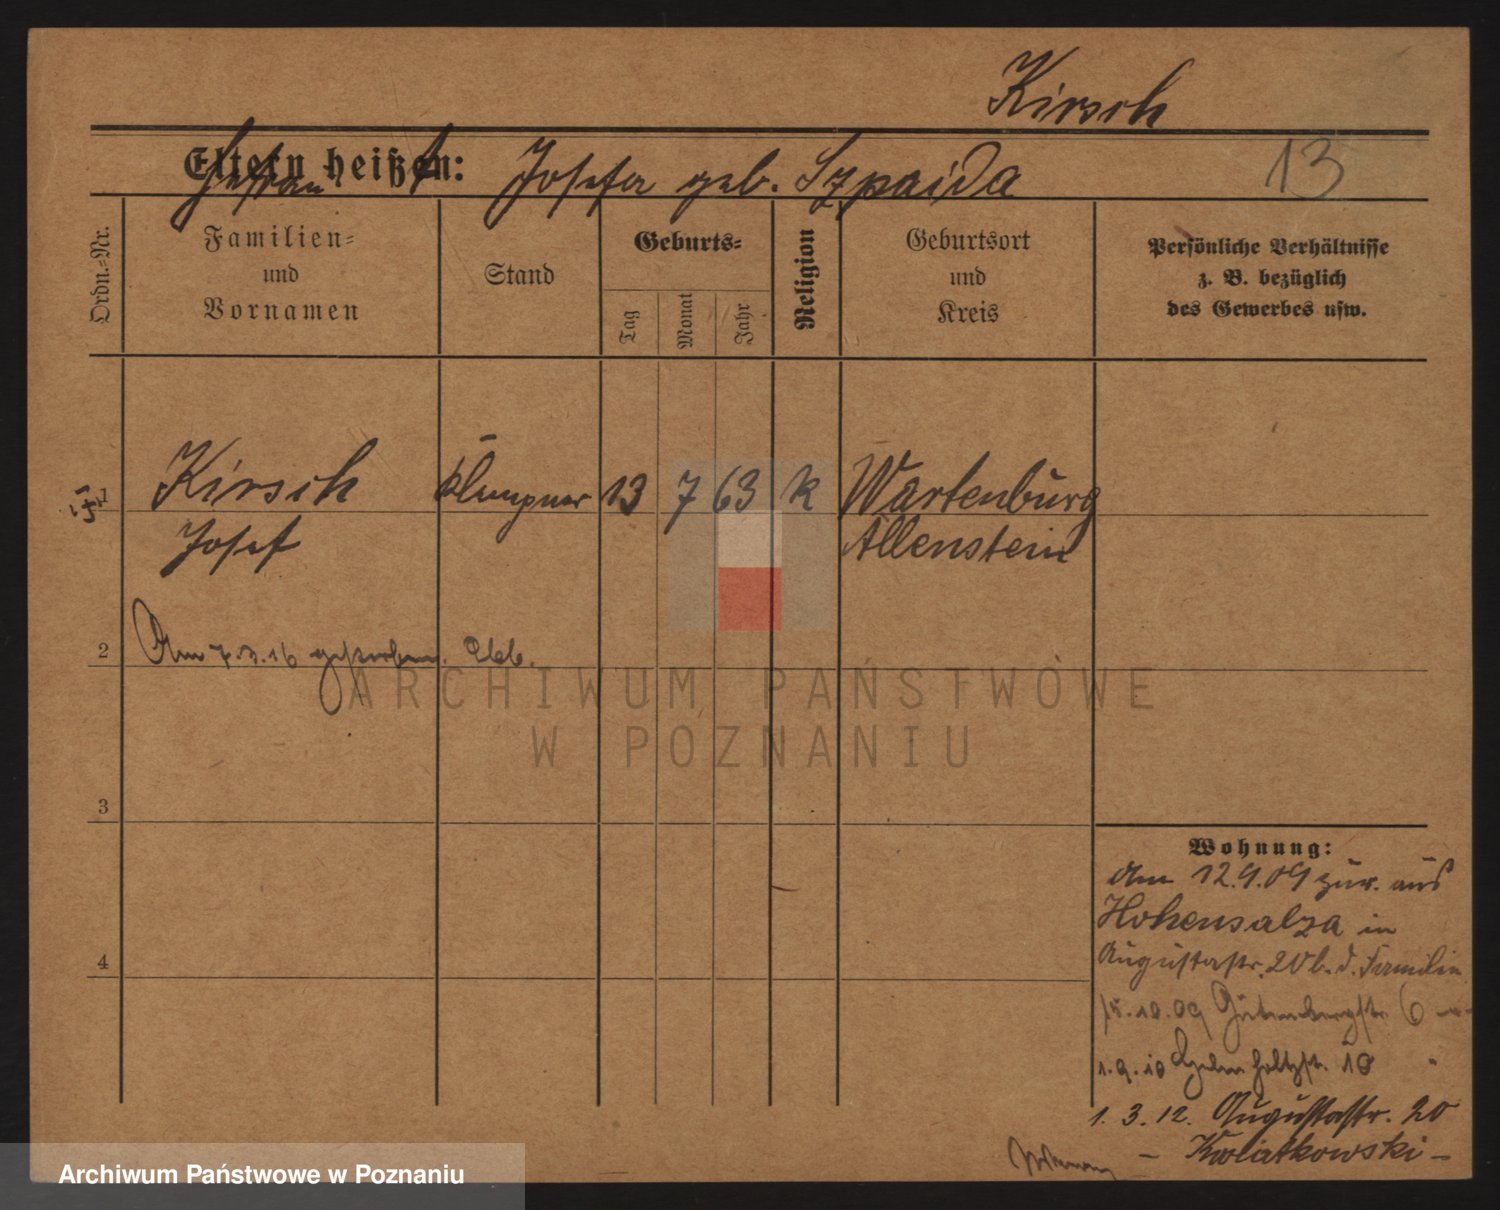 Kirsch
Eltern heißen: Josefa geb. Szpaida
13
Ordn.=Nr.
Familien=
und
Vornamen
Stand
Geburts=
Tag
Monat
Jahr
Religion
Geburtsort
und
Kreis
Persönliche Verhältnisse
z. B. bezüglich
des Gewerbes usw.
1
Kirsch Klempner 13 7 63 k Wartenburg
Josef Allenstein
2
Am 7.3.16 gestorben.
3
4
Wohnung:
Am 12.9.09 zur. aus
Hohensalza in
Augustastr. 20 b. d. Familie
15.10.09 Gutenbergstr. 6
1.9.10 10 "
1. 3. 12. Augustastr. 20
- Kwiatkowski -
ARCHIWUM PAŃSTWOWE
W POZNANIU
Archiwum Państwowe w Poznaniu